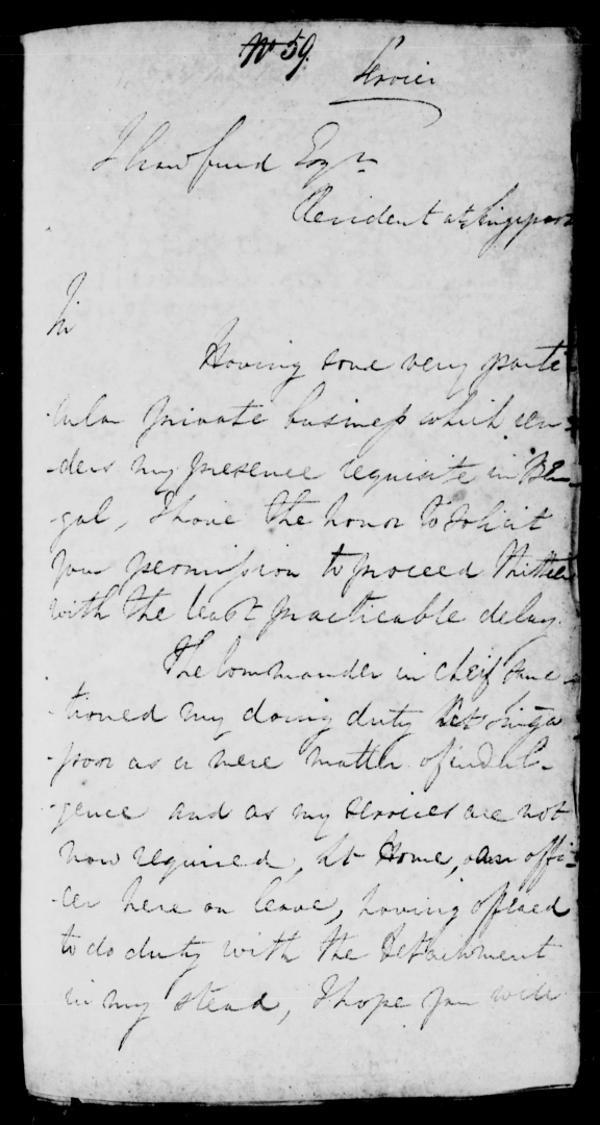 No 59.
J Crawfurd Esqr
Resident at Singapore
Sir
Having some very parti
-cular private business which ren-
-ders my presence requisite in Ben-
-gal, I have the honor to solicit
your permission to proceed thither
with the least practicable delay.
The Commander in cheif sanc-
-tioned my doing duty at Singa
-poor as a mere matter of indul-
-gence and as my services are not
now required, Lt Home, an offi-
-cer here on leave, having offered
to do duty with the Detachment
in my stead, I hope you will